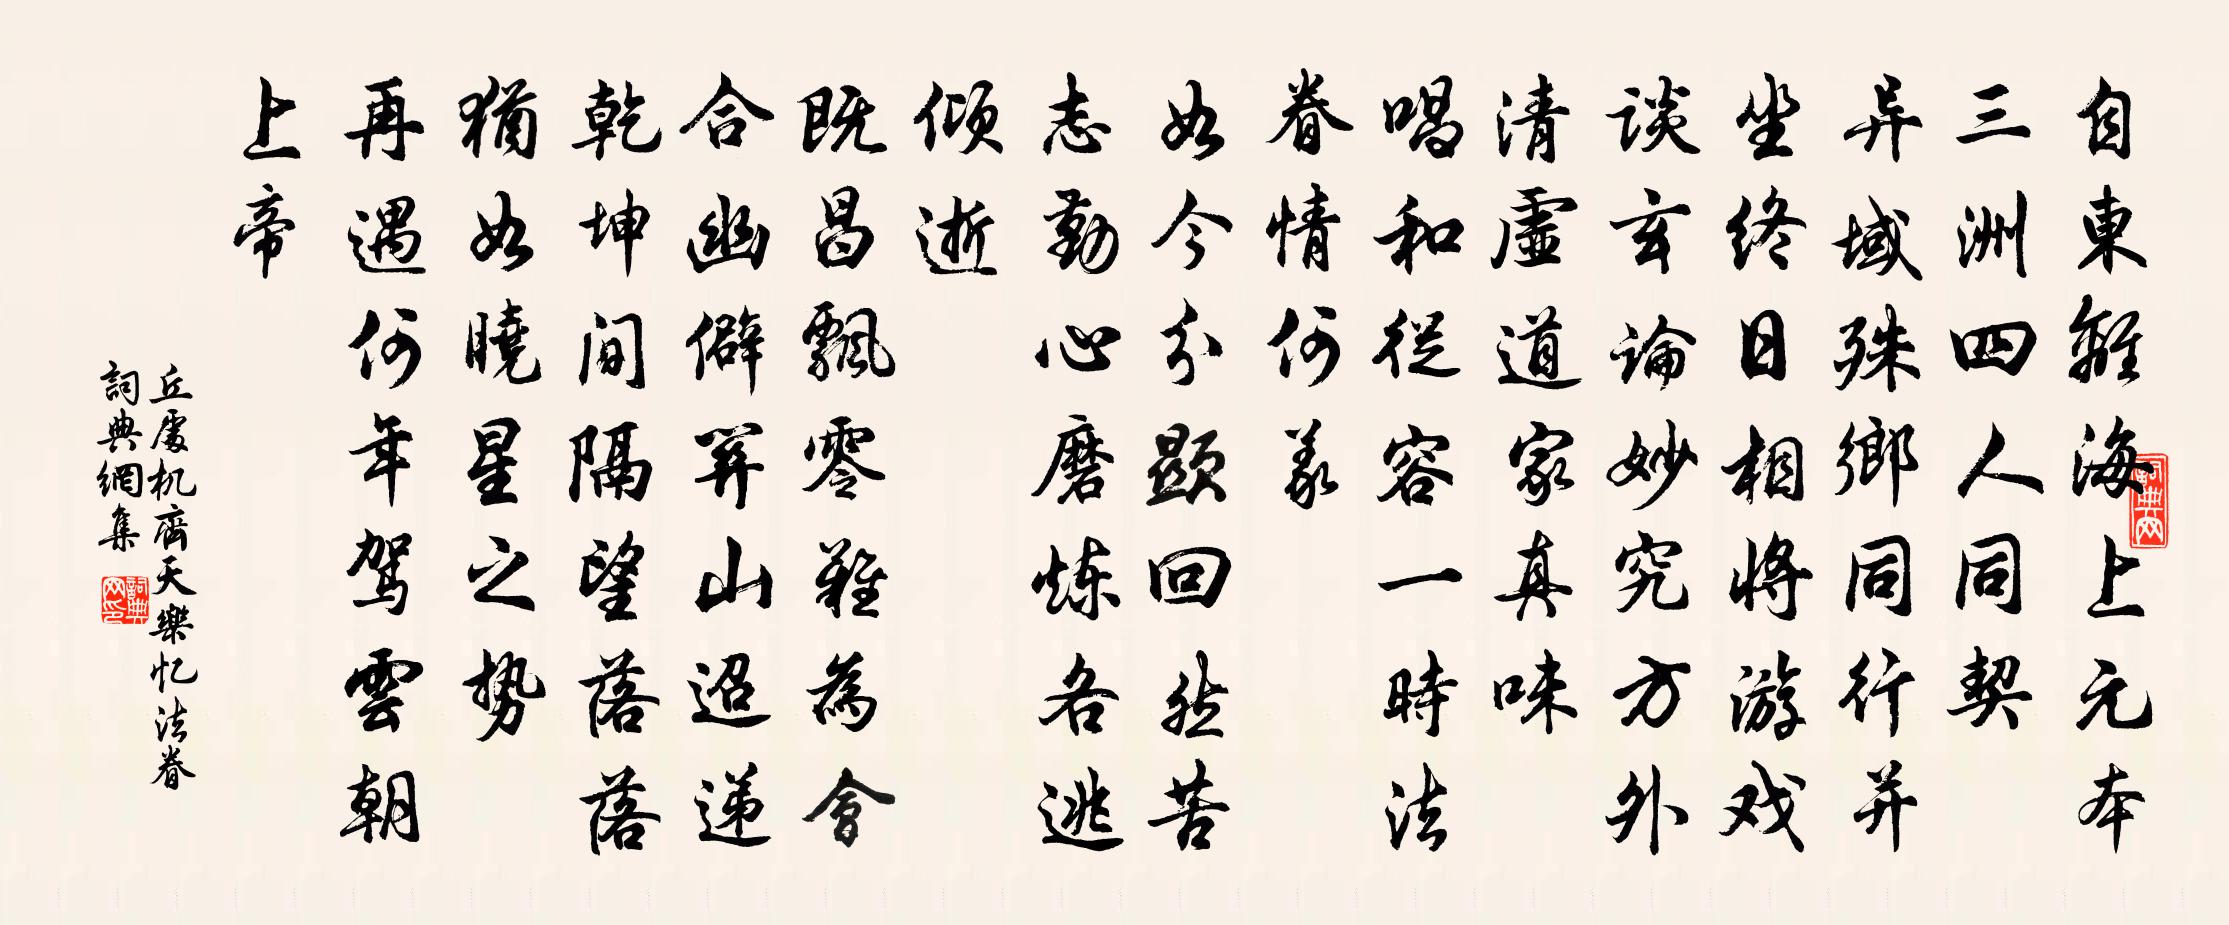 自東離海上元本
三洲四人同契
异域殊鄉同行并
坐終日相將游戏
談玄論妙究方外
清虛道家真味
唱和從容一時法
眷情何義
如今分顯回然苦
志勤心磨炼各逃
傾逝
既昌飄零難為會
合幽僻關山迢递
乾坤間隔望落落
猶如曉星之势
再遇何年駕雲朝
上帝
丘處机齊天樂忆法眷
詞典網集
詞典网
詞典网印